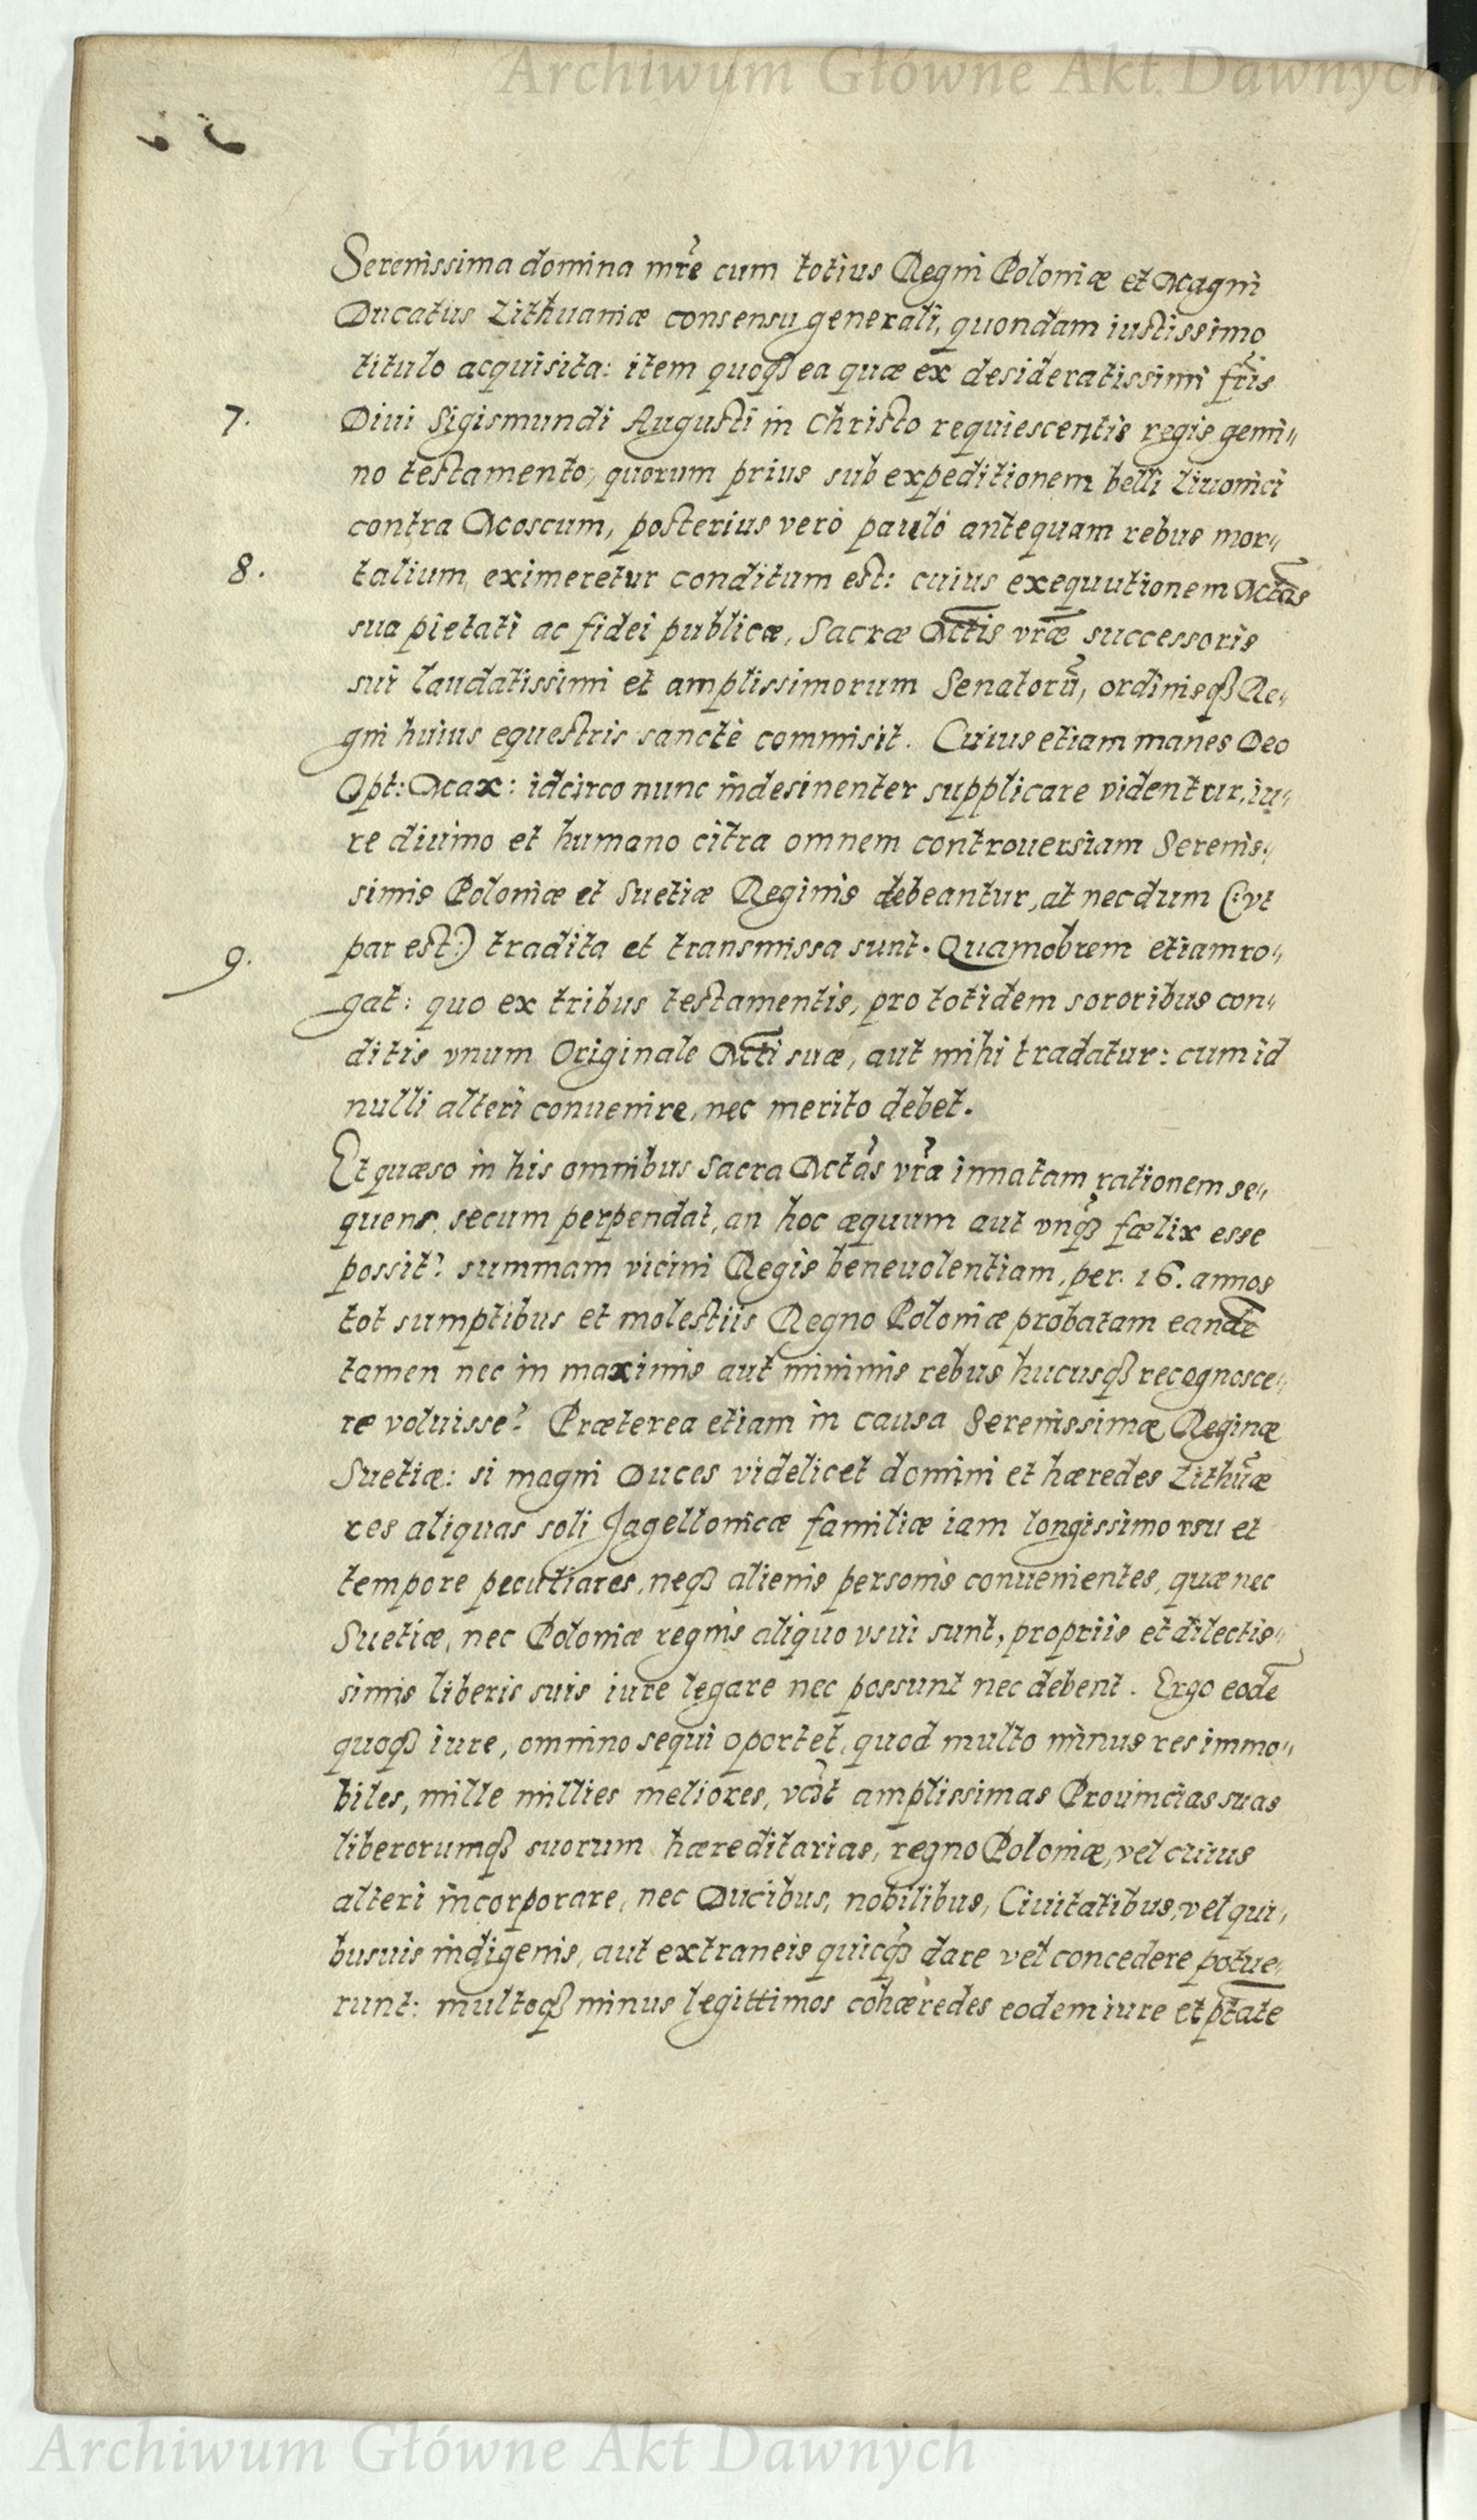 Archiwum Główne Akt Dawnych
Serenissima domina mre cum totius Regni Poloniæ et Magni
Ducatus Lithuaniæ consensu generali, quondam iustissimo
titulo acquisita: item quoqꝫ ea quæ ex desideratissimi fris
7. Diui Sigismundi Augusti in Christo requiescentis regis gemi„
no testamento, quorum prius sub expeditionem belli Liuonici
contra Moscum, posterius verò paulò antequam rebus mor„
8. talium eximeretur conditum est: cuius exequutionem Mctas
sua pietati ac fidei publicæ, Sacræ Mctis vræ successoris
sui laudatissimi et amplissimorum Senatorū, ordinisqꝫ Re„
gni huius equestris sanctè commisit. Cuius etiam manes Deo
Opt: Max: idcirco nunc indesinenter supplicare videntur, iu„
re diuino et humano citra omnem controuersiam Serenis„
simis Poloniæ et Suetiæ Reginis debeantur, at necdum (:vt
par est:) tradita et transmissa sunt. Quamobrem etiam ro„
9. gat: quo ex tribus testamentis, pro totidem sororibus con„
ditis vnum Originale Mcti suæ, aut mihi tradatur: cum id
nulli alteri conuenire, nec merito debet.
Et quæso in his omnibus Sacra Mctas vra innatam rationem se„
quens secum perpendat, an hoc æquum aut vnqꝫ fœlix esse
possit? summam vicini Regis beneuolentiam, per 16. annos
tot sumptibus et molestiis Regno Poloniæ probatam eandē
tamen nec in maximis aut minimis rebus hucusqꝫ recognosce„
re voluisse? Præterea etiam in causa Serenissimæ Reginæ
Suetiæ: si magni Duces videlicet domini et hæredes Lithuæ
res aliquas soli Jagellonicæ familiæ iam longissimo vsu et
tempore peculiares, neqꝫ alienis personis conuenientes, quæ nec
Suetiæ, nec Poloniæ regnis aliquo vsui sunt, propriis et dilectis„
simis liberis suis iure legare nec possunt nec debent. Ergo eodē
quoqꝫ iure, omnino sequi oportet, quod multo minus res immo„
biles, mille millies meliores, vcit amplissimas Prouincias suas
liberorumqꝫ suorum hæreditarias, regno Poloniæ, vel cuius
alteri incorporare, nec Ducibus, nobilibus, Ciuitatibus, vel qui„
busuis indigenis, aut extraneis quicqꝫ dare vel concedere potue„
runt: multoqꝫ minus legittimos cohæredes eodem iure et ptate
Archiwum Główne Akt Dawnych